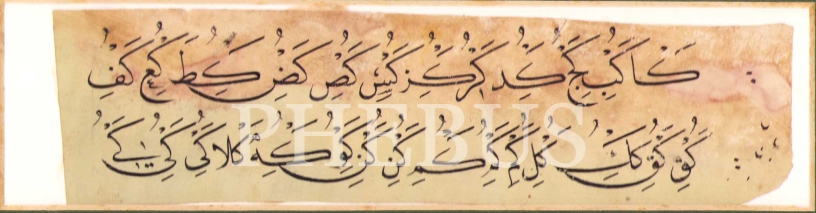 كا كب كج كد كر كز كس كص كض كط كع كف
كق كك كل كم كم كن كو كه كلا كي
PHEBUS